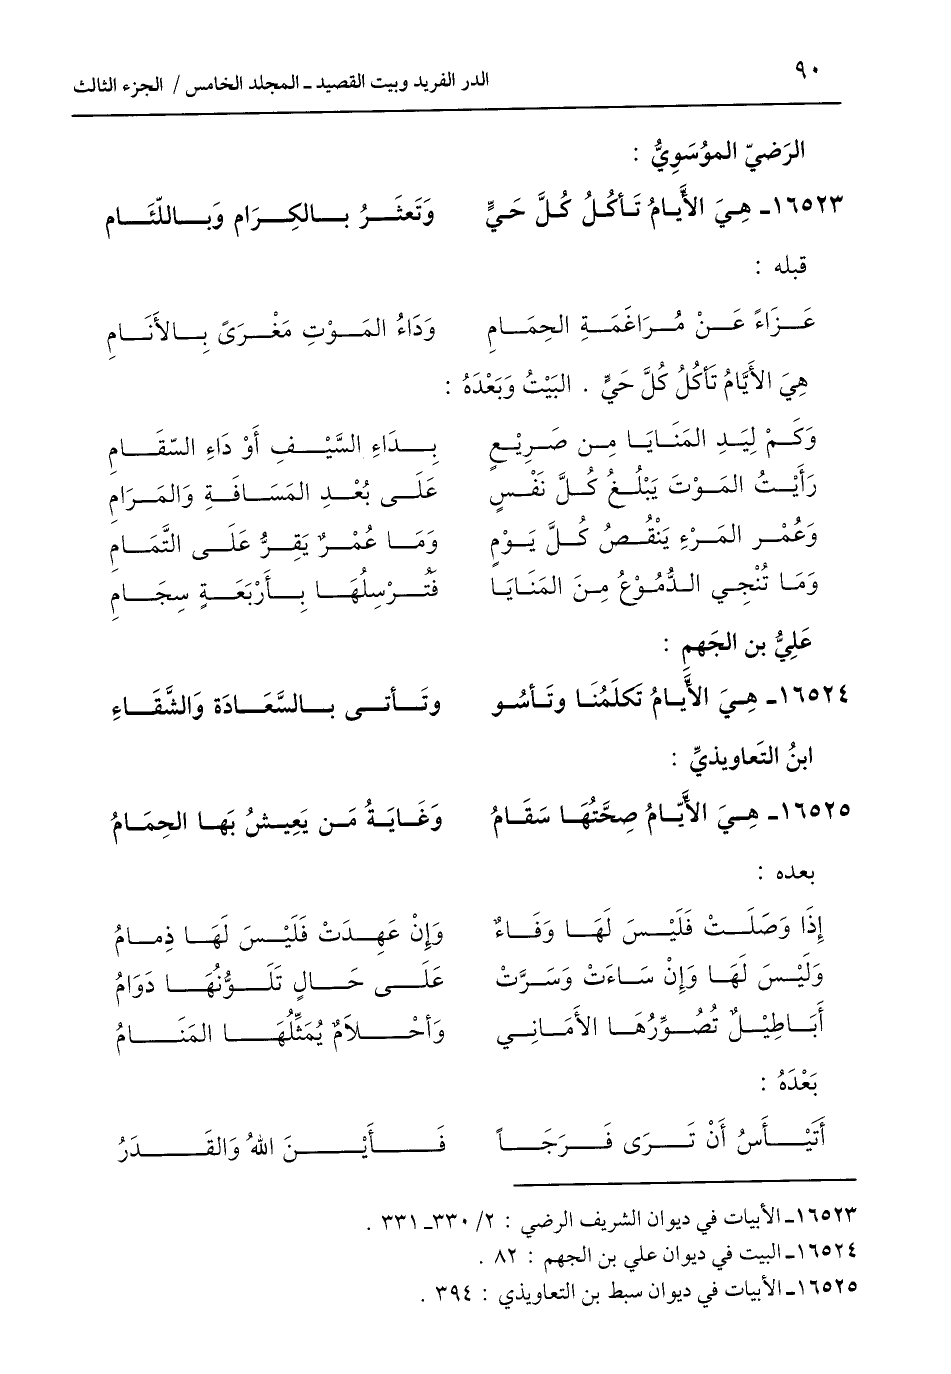 ٩٠
الدر الفريد وبيت القصيد ـ المجلد الخامس / الجزء الثالث
الرَضيّ الموُسَوِيُّ :
١٦٥٢٣ـ هِيَ الأَيامُ تَأكُلُ كُلَّ حَيٍّ وَتَعثَرُ بالكِرَامِ وَباللّئَامِ
قبله :
عَزَاءً عَنْ مُرَاغَمَةِ الحِمَامِ وَدَاءُ المَوْتِ مَغْرَىً بِالأَنَامِ
هِيَ الأَيَّامُ تَأكُلُ كُلَّ حَيٍّ . البَيْتُ وَبَعْدَهُ :
وَكَمْ لِيَدِ المَنَايَا مِن صَرِيْعٍ بِدَاءِ السَّيْفِ أَوْ دَاءِ السّقَامِ
رَأَيْتُ المَوْتَ يَبْلُغُ كُلَّ نَفْسٍ عَلَى بُعْدِ المَسَافَةِ وَالمَرَامِ
وَعُمْر المَرْءِ يَنْقُصُ كُلَّ يَوْمٍ وَمَا عُمْرٌ يَقِرُّ عَلَى التَّمَامِ
وَمَا تُنْجِي الدُّمُوْعُ مِنَ المَنَايَا فَتُرْسِلُهَا بِأَرْبَعَةٍ سِجَامِ
عَلِيُّ بن الجَهم :
١٦٥٢٤ـ هِيَ الأَيامُ تَكلَمُنَا وتَأسُو وتَأتى بالسَّعَادَة وَالشَّقَاءِ
ابنُ التَعاويذيِّ :
١٦٥٢٥ـ هِيَ الأَيّامُ صِحَّتُهَا سَقَامُ وَغَايَةُ مَن يَعِيشُ بَها الحِمَامُ
بعده :
إِذَا وَصَلَتْ فَلَيْسَ لَهَا وَفَاءٌ وَإِنْ عَهِدَتْ فَلَيْسَ لَهَا ذِمامُ
وَلَيْسَ لَهَا وَإِنْ سَاءَتْ وَسَرَّتْ عَلَى حَالٍ تَلَوُّنُهَا دَوَامُ
أَبَاطِيْلٌ تُصُوِّرُهَا الأَمَانِي وَأحْلاَمٌ يُمَثِّلُهَا المَنَامُ
بَعْدَهُ :
أَتَيْأَسُ أَنْ تَرَى فَرَجَاً فَأَيْنَ اللهُ وَالقَدَرُ
١٦٥٢٣ـ الأبيات في ديوان الشريف الرضي : ٢/ ٣٣٠ـ ٣٣١ .
١٦٥٢٤ـ البيت في ديوان علي بن الجهم : ٨٢ .
١٦٥٢٥ـ الأبيات في ديوان سبط بن التعاويذي : ٣٩٤ .